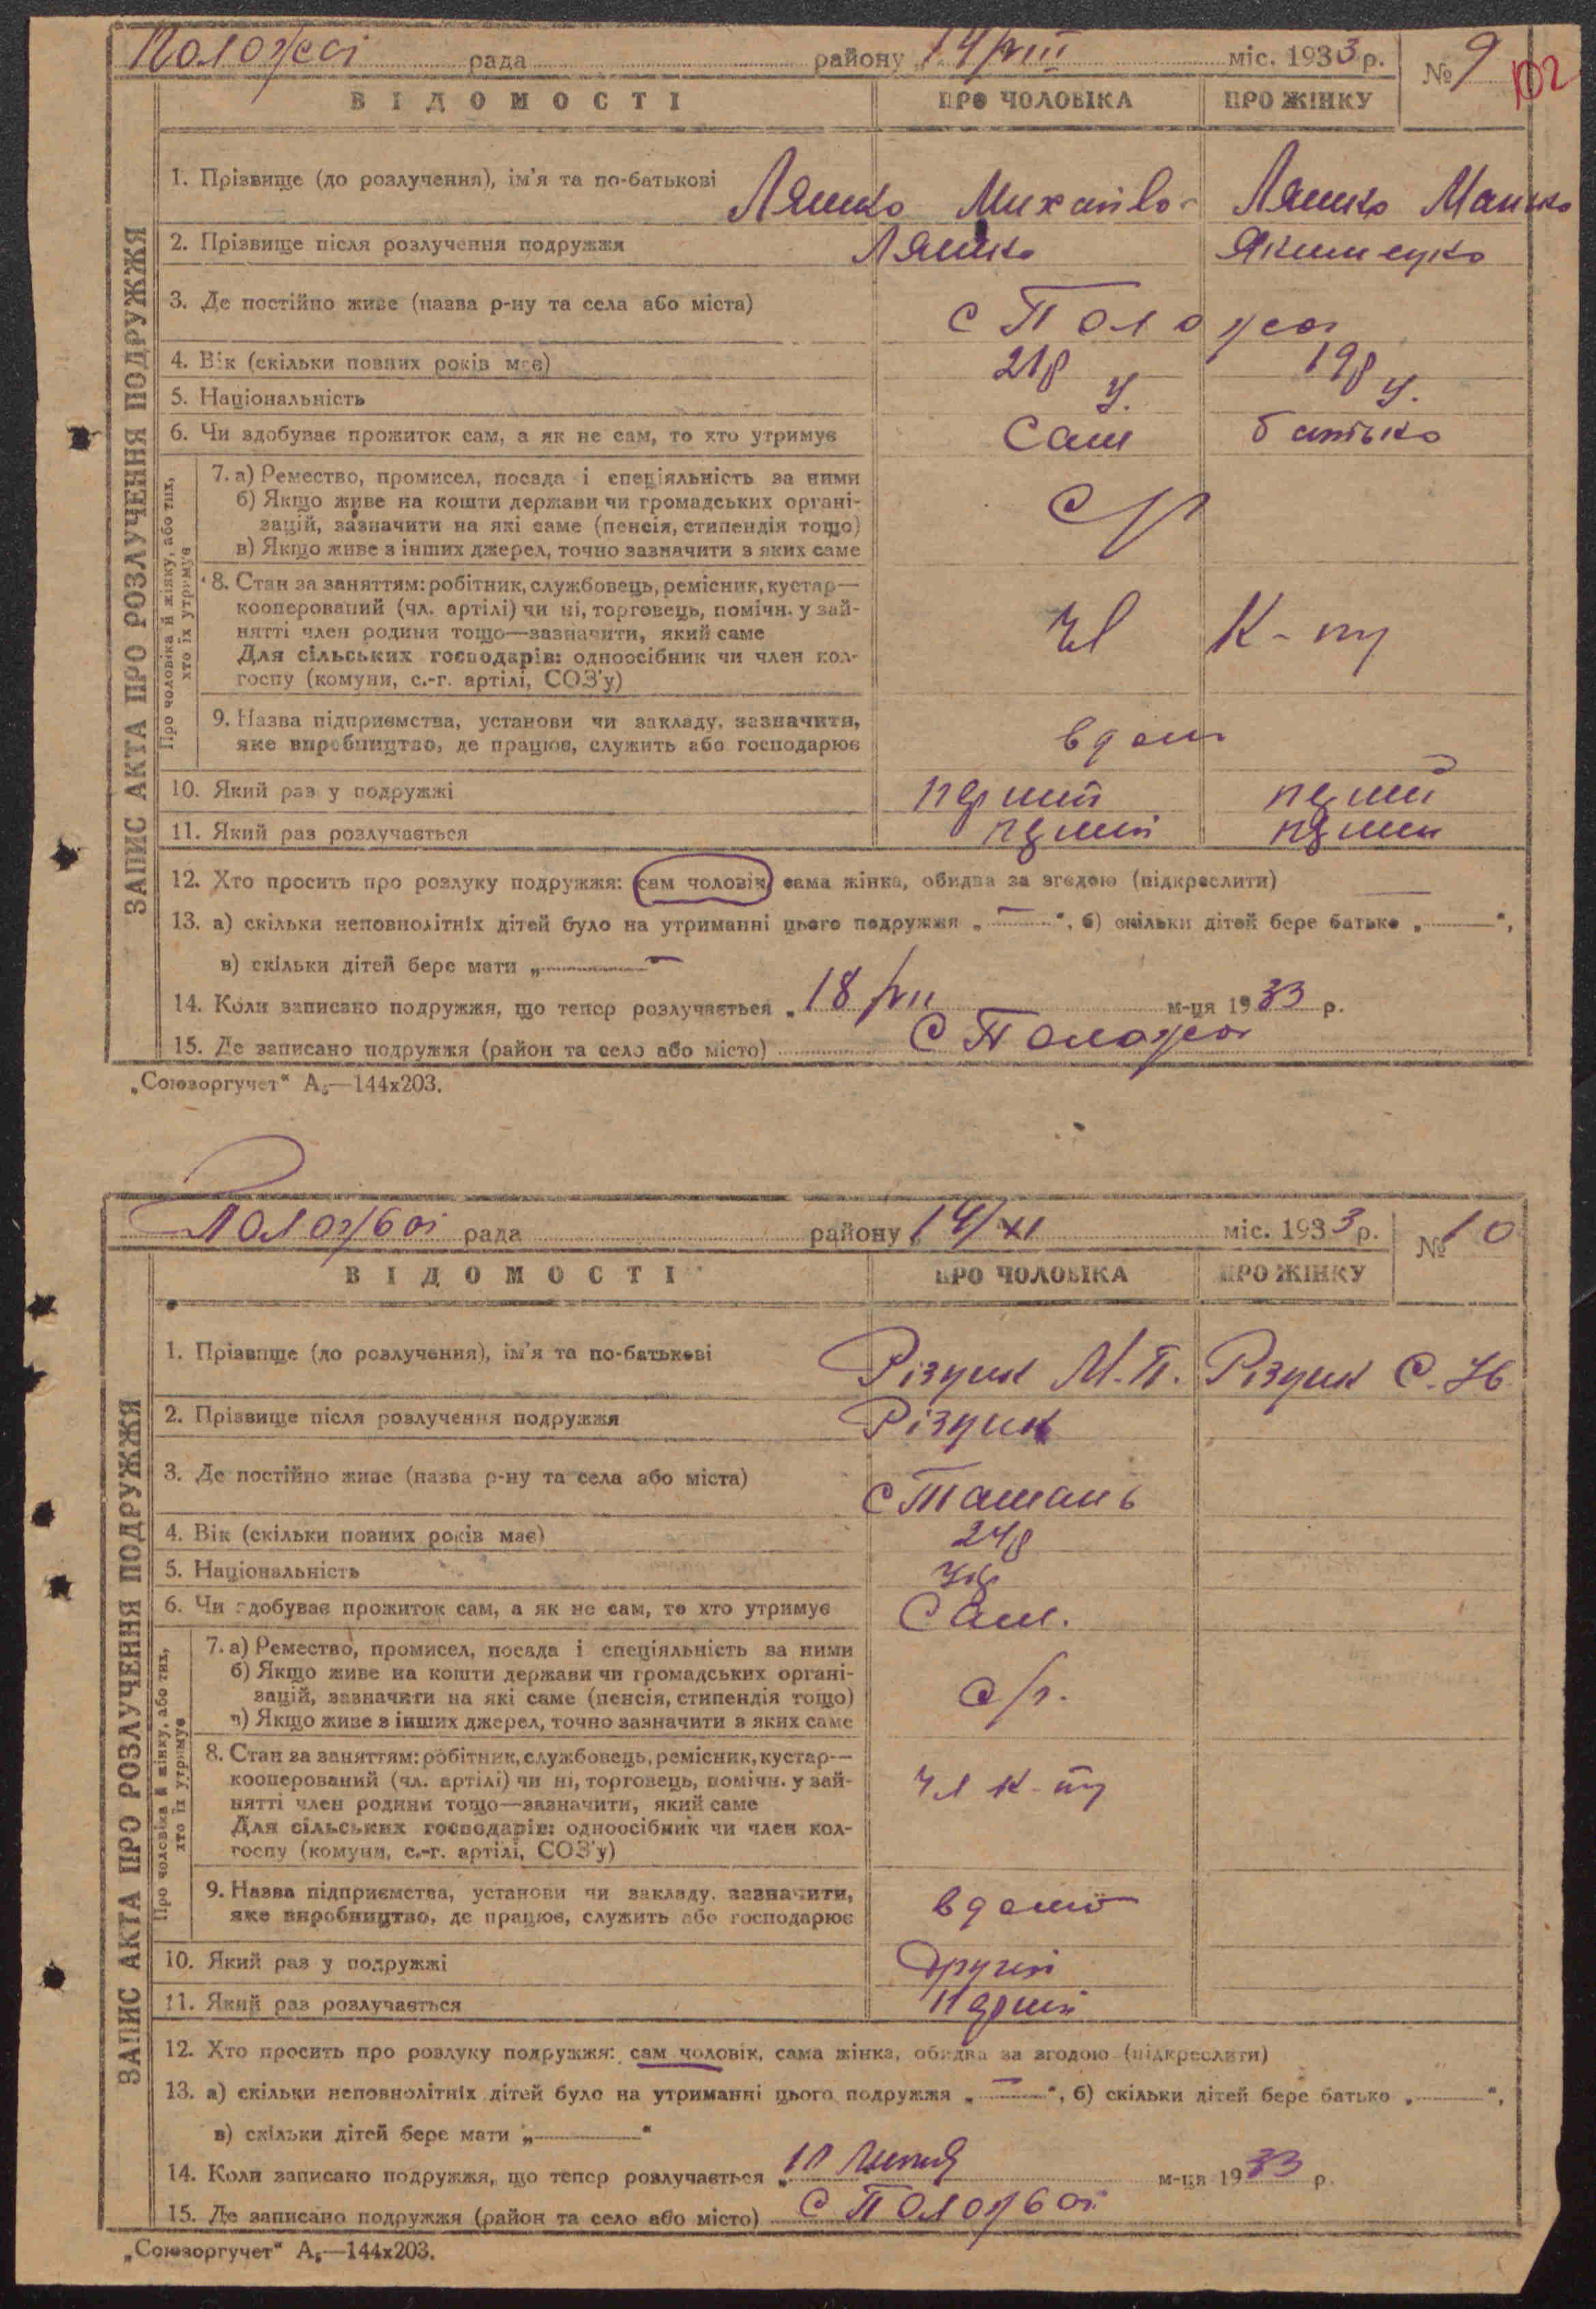 рада району 14/VIII міс. 1933 р. № 9 102
ВІДОМОСТІ ПРО ЧОЛОВІКА ПРО ЖІНКУ
ЗАПИС АКТА ПРО РОЗЛУЧЕННЯ ПОДРУЖЖЯ
1. Прізвище (до розлучення), ім'я та по-батькові Ляшко Ляшко
2. Прізвище після розлучення подружжя Ляшко
3. Де постійно живе (назва р-ну та села або міста) с
4. Вік (скільки повних років має) 21р 19р
5. Національність У. У.
6. Чи здобуває прожиток сам, а як не сам, то хто утримує Сам батько
Про чоловіка й жінку, або тих,
хто їх утримує
7. а) Ремество, промисел, посада і спеціяльність за ними
б) Якщо живе на кошти держави чи громадських органі-
зацій, зазначити на які саме (пенсія, стипендія тощо)
в) Якщо живе з інших джерел, точно зазначити з яких саме
8. Стан за заняттям: робітник, службовець, ремісник, кустар—
кооперований (чл. артілі) чи ні, торговець, помічн. у зай-
нятті член родини тощо—зазначити, який саме
Для сільських господарів: одноосібник чи член кол-
госпу (комуни, с.-г. артілі, СОЗ'у)
9. Назва підприємства, установи чи закладу, зазначити,
яке виробництво, де працює, служить або господарює
10. Який раз у подружжі
11. Який раз розлучається
12. Хто просить про розлуку подружжя: сам чоловік, сама жінка, обидва за згодою (підкреслити)
13. а) скільки неповнолітніх дітей було на утриманні цього подружжя „—“, б) скільки дітей бере батько „—“,
в) скільки дітей бере мати „—“
14. Коли записано подружжя, що тепер розлучається „18/VII м-ця 1933 р.
15. Де записано подружжя (район та село або місто) с
„Союзоргучет“ А5—144х203.
рада району „14/XI міс. 1933 р. № 10
ВІДОМОСТІ ПРО ЧОЛОВІКА ПРО ЖІНКУ
ЗАПИС АКТА ПРО РОЗЛУЧЕННЯ ПОДРУЖЖЯ
1. Прізвище (до розлучення), ім'я та по-батькові Різник М.П. Різник С.
2. Прізвище після розлучення подружжя Різник
3. Де постійно живе (назва р-ну та села або міста) с Ташань
4. Вік (скільки повних років має) 24р
5. Національність
6. Чи здобуває прожиток сам, а як не сам, то хто утримує Сам.
Про чоловіка й жінку, або тих,
хто їх утримує
7. а) Ремество, промисел, посада і спеціяльність за ними
б) Якщо живе на кошти держави чи громадських органі-
зацій, зазначити на які саме (пенсія, стипендія тощо)
в) Якщо живе з інших джерел, точно зазначити з яких саме
8. Стан за заняттям: робітник, службовець, ремісник, кустар—
кооперований (чл. артілі) чи ні, торговець, помічн. у зай-
нятті член родини тощо—зазначити, який саме
Для сільських господарів: одноосібник чи член кол-
госпу (комуни, с.-г. артілі, СОЗ'у)
9. Назва підприємства, установи чи закладу, зазначити,
яке виробництво, де працює, служить або господарює
10. Який раз у подружжі другий
11. Який раз розлучається
12. Хто просить про розлуку подружжя: сам чоловік, сама жінка, обидва за згодою (підкреслити)
13. а) скільки неповнолітніх дітей було на утриманні цього подружжя „—“, б) скільки дітей бере батько „—“,
в) скільки дітей бере мати „—“
14. Коли записано подружжя, що тепер розлучається „10 м-ця 1933 р.
15. Де записано подружжя (район та село або місто) с
„Союзоргучет“ А5—144х203.